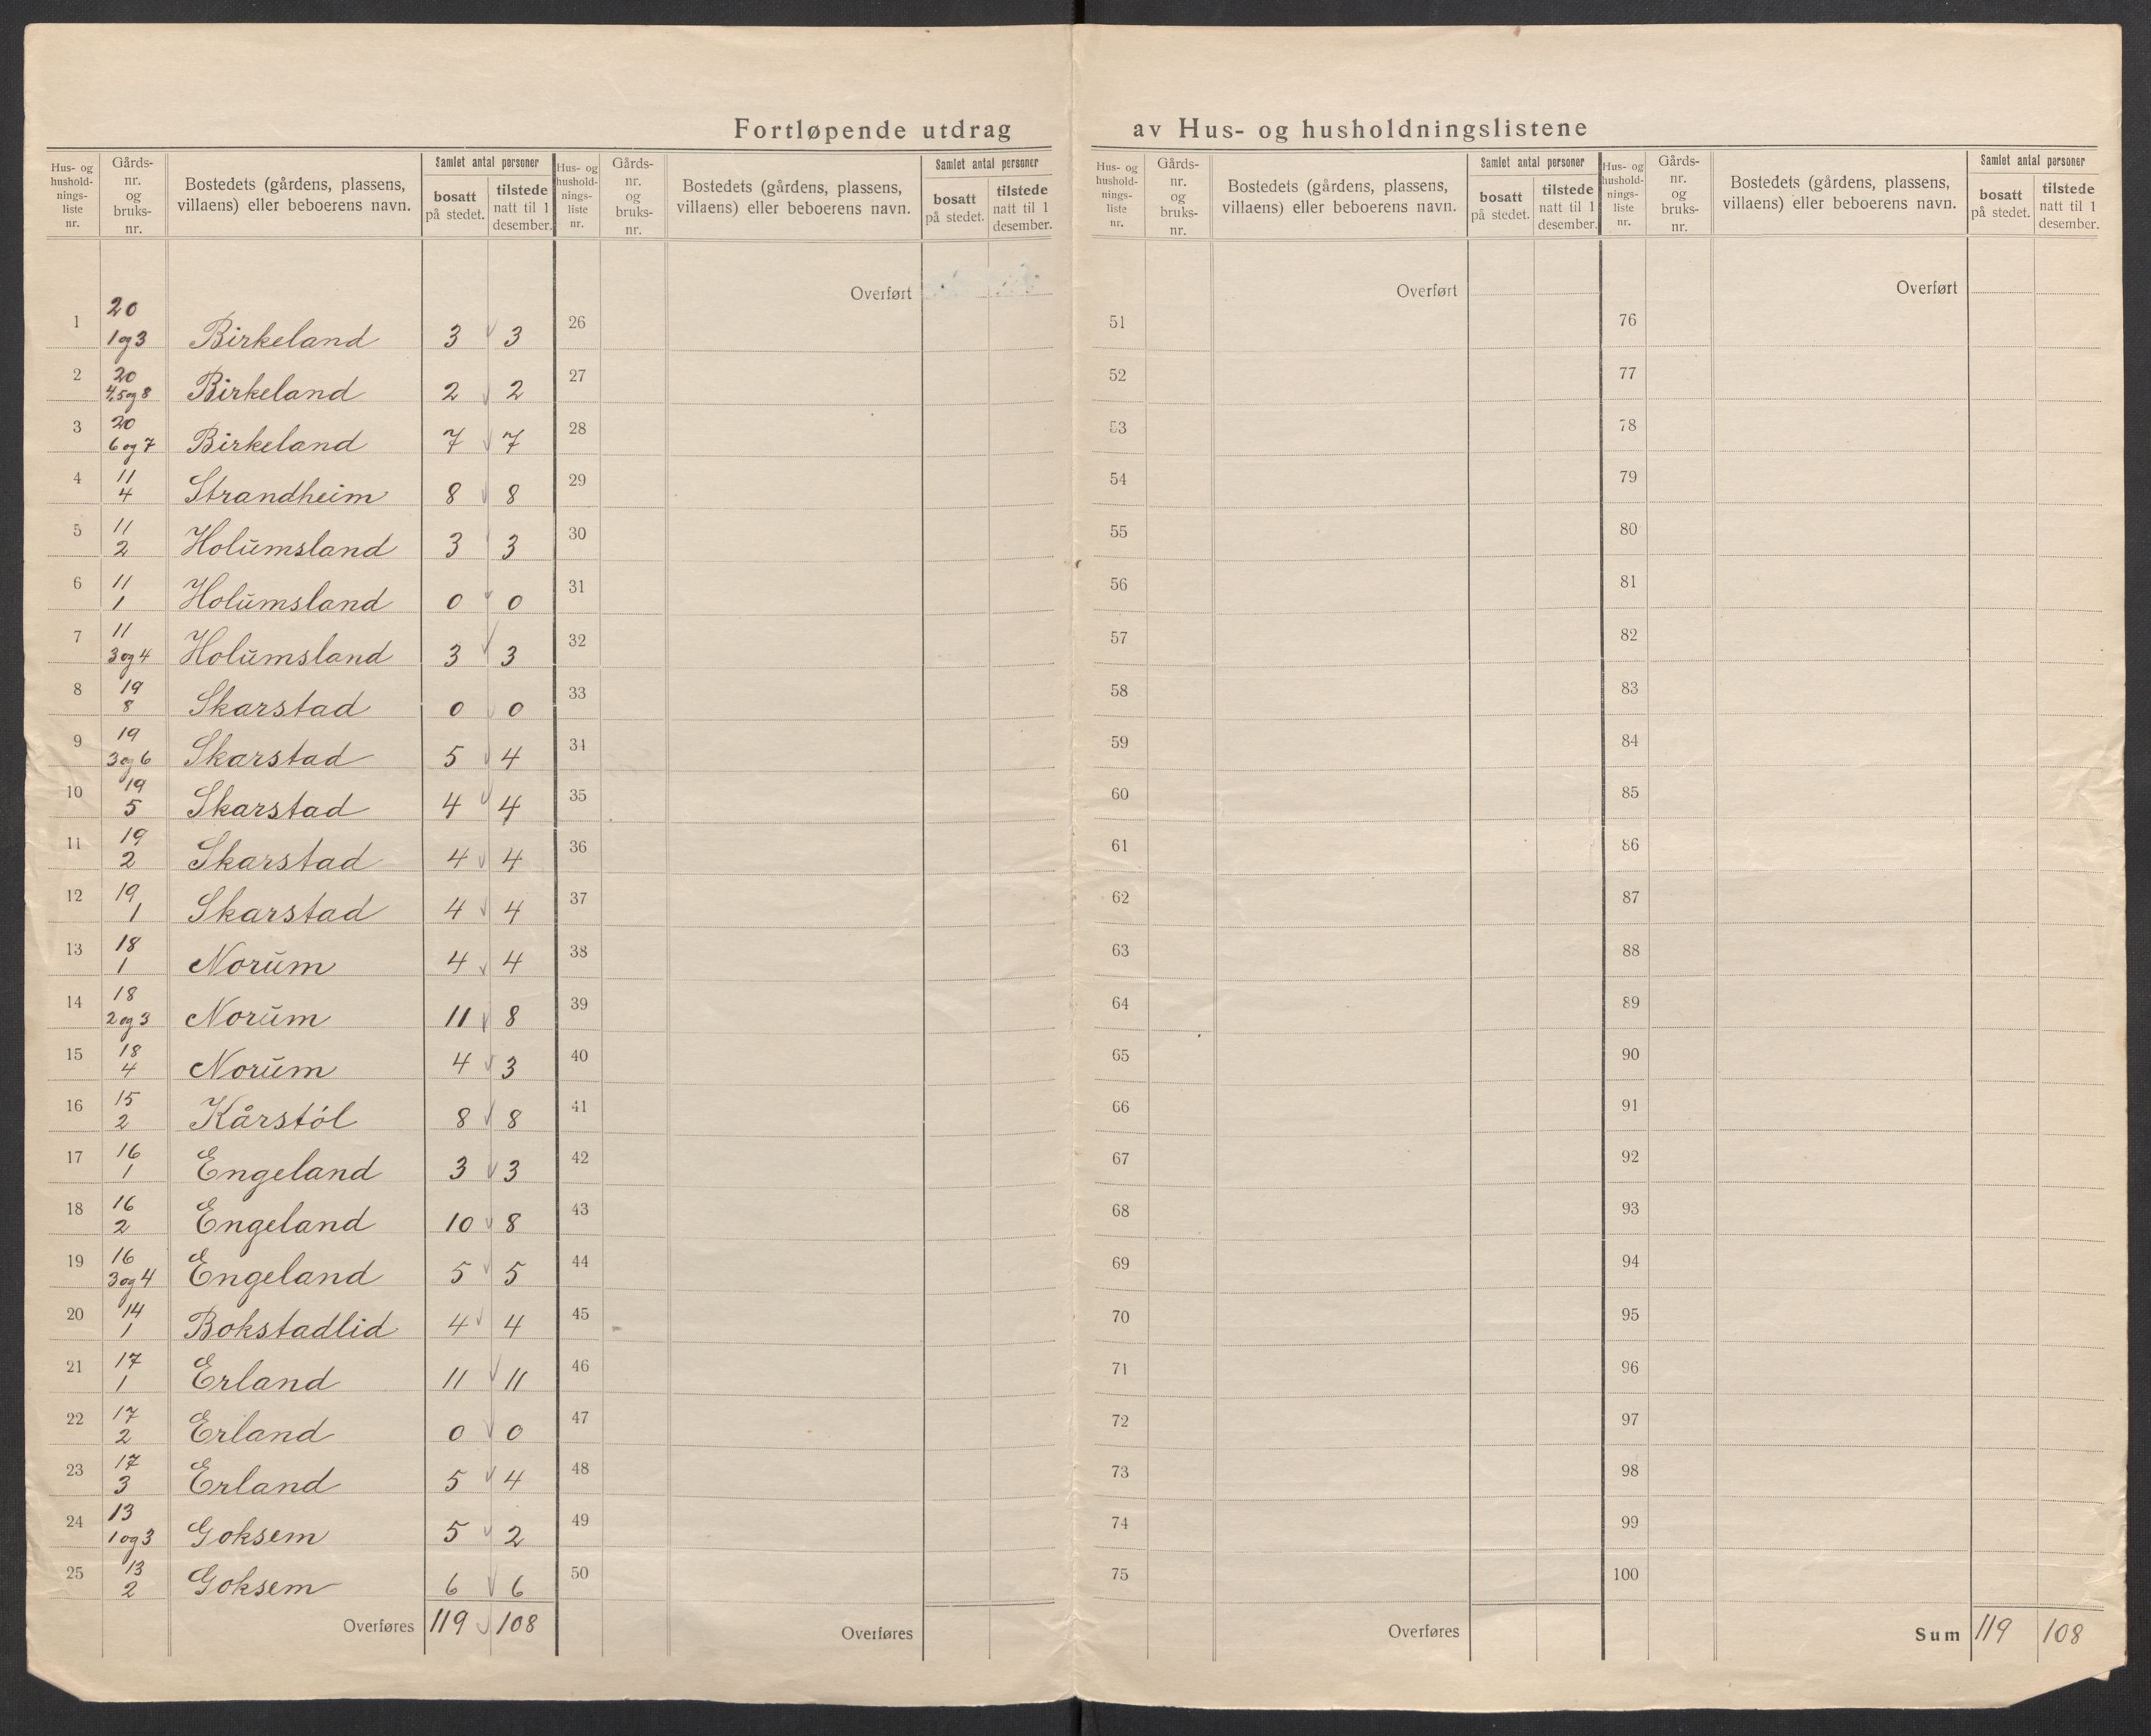 Fortløpende utdrag av Hus- og husholdningslistene
Hus- og hushold- nings- liste nr. Gårds- nr. og bruks- nr. Bostedets (gårdens, plassens, villaens) eller beboerens navn. Samlet antal personer bosatt på stedet. tilstede natt til 1 desember.
Hus- og hushold- nings- liste nr. Gårds- nr. og bruks- nr. Bostedets (gårdens, plassens, villaens) eller beboerens navn. Samlet antal personer bosatt på stedet. tilstede natt til 1 desember.
Hus- og hushold- nings- liste nr. Gårds- nr. og bruks- nr. Bostedets (gårdens, plassens, villaens) eller beboerens navn. Samlet antal personer bosatt på stedet. tilstede natt til 1 desember.
Hus- og hushold- nings- liste nr. Gårds- nr. og bruks- nr. Bostedets (gårdens, plassens, villaens) eller beboerens navn. Samlet antal personer bosatt på stedet. tilstede natt til 1 desember.
Overført Overført Overført
1 20 1 og 3 Birkeland 3 3 26 51 76
2 20 4,5 og 8 Birkeland 2 2 27 52 77
3 20 6 og 7 Birkeland 7 7 28 53 78
4 11 4 Strandheim 8 8 29 54 79
5 11 2 Holŭmsland 3 3 30 55 80
6 11 1 Holŭmsland 0 0 31 56 81
7 11 3 og 4 Holŭmsland 3 3 32 57 82
8 19 8 Skarstad 0 0 33 58 83
9 19 3 og 6 Skarstad 5 4 34 59 84
10 19 5 Skarstad 4 4 35 60 85
11 19 2 Skarstad 4 4 36 61 86
12 19 1 Skarstad 4 4 37 62 87
13 18 1 Norŭm 4 4 38 63 88
14 18 2 og 3 Norŭm 11 8 39 64 89
15 18 4 Norŭm 4 3 40 65 90
16 15 2 Kårstól 8 8 41 66 91
17 16 1 Engeland 3 3 42 67 92
18 16 2 Engeland 10 8 43 68 93
19 16 3 og 4 Engeland 5 5 44 69 94
20 14 1 Bokstadlid 4 4 45 70 95
21 17 1 Erland 11 11 46 71 96
22 17 2 Erland 0 0 47 72 97
23 17 3 Erland 5 4 48 73 98
24 13 1 og 3 Goksem 5 2 49 74 99
25 13 2 Goksem 6 6 50 75 100
Overføres 119 108 Overføres Overføres Sum 119 108